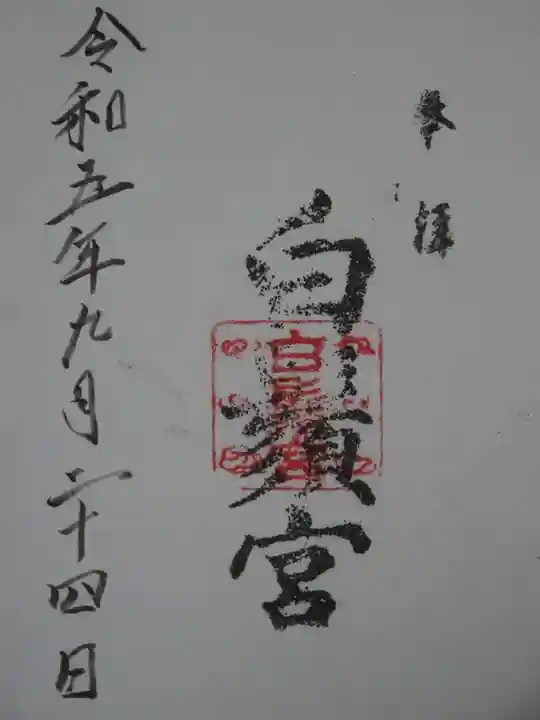 参拝
白鬚宮
令和五年九月二十四日